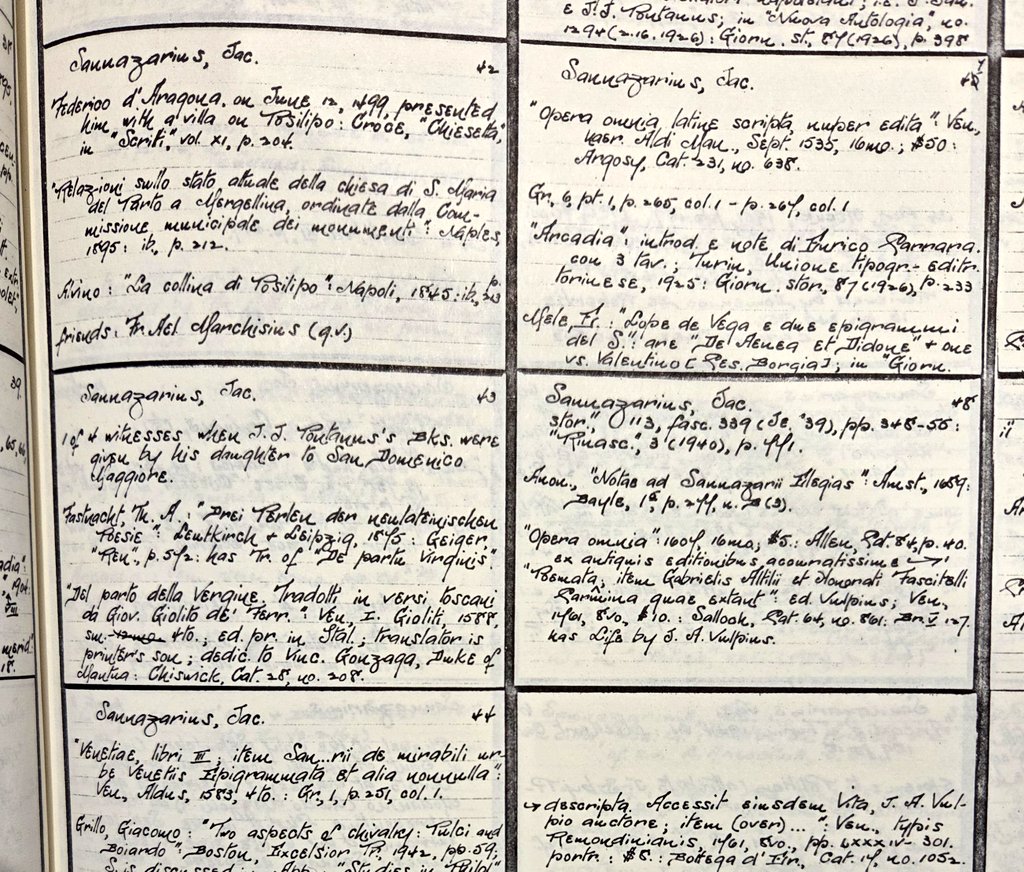 Sannazarius, Jac. 42
Federico d'Aragona, on June 12, 1499, presented
him with a villa on Posilipo: Croce, "Chiesetta",
in "Scritti", vol. XI, p. 204.
"Relazioni sullo stato attuale della chiesa di S. Maria
del Parto a Mergellina, ordinate dalla Com-
missione municipale dei monumenti": Naples,
1895: ib., p. 212.
Alvino: "La collina di Posilipo": Napoli, 1845: ib., p. 213
friends: Fr. Ael. Marchisius (q.v.)
Sannazarius, Jac. 43
1 of 4 witnesses when J. J. Pontanus's Bks. were
given by his daughter to San Domenico
Maggiore.
Fastnacht, Th. A.: "Drei Perlen der neulateinischen
Poesie": Leutkirch & Leipzig, 1875: Geiger,
"Ren.", p. 572: has Tr. of "De partu Virginis".
"Del parto della Vergine. Tradotti in versi toscani
da Giov. Giolito de' Ferr.": Ven., I. Gioliti, 1588,
sm. 4to.; ed. pr. in Ital.; translator is
printer's son; dedic. to Vinc. Gonzaga, Duke of
Mantua: Chiswick, Cat. 28, no. 208.
Sannazarius, Jac. 44
"Venetiae, libri III; item San..rii de mirabili ur-
be Venetis Epigrammata et alia nonnulla":
Ven., Aldus, 1583, 4to.: Gr., 1, p. 251, col. 1.
Grillo, Giacomo: "Two aspects of chivalry: Pulci and
Boiardo": Boston, Excelsior Pr., 1942, pp. 59;
S. is discussed:
& J. J. Pontanus; in "Nuova Antologia", no.
1294 (2.16.1926): Giorn. st., 87 (1926), p. 398
Sannazarius, Jac.
"Opera omnia latine scripta, nuper edita": Ven.,
haer. Aldi Man., Sept. 1535, 16mo.; $50:
Argosy, Cat. 231, no. 638.
Gr., 6, pt. 1, p. 265, col. 1 - p. 267, col. 1
"Arcadia": introd. e note di Enrico Carrara.
con 3 tav.; Turin, Unione tipogr.-editr.
torinese, 1925: Giorn. stor., 87 (1926), p. 233
Mele, Fr.: "Lope de Vega e due epigrammi
del S.": are "De Aenea et Didone" & one
vs. Valentino [Ces. Borgia]; in "Giorn.
Sannazarius, Jac. 48
stor.", 113, fasc. 339 (Je. '39), pp. 348-50:
"Rinasc.", 3 (1940), p. 771.
Anon., "Notae ad Sannazarii Elegias": Amst., 1659:
Bayle, p. 277, n. B (3).
"Opera omnia": 1607, 16mo; $5.: Allen, Cat. 84, p. 40.
ex antiquis editionibus accuratissime →
"Poemata; item Gabrielis Altilii et Honorati Fascitelli
Carmina quae extant": ed. Vulpius; Ven.,
1761, 8vo., $10.: Salloch, Cat. 64, no. 861: Br. V 127.
has Life by J. A. Vulpius.
→ descripta. Accessit eiusdem Vita, J. A. Vul-
pio auctore; item (over) ... ": Ven., typis
Remondinianis, 1761, 8vo., pp. LXXXIV-301.
portr.: $8.: Bottega d'Er., Cat. 17, no. 1052.